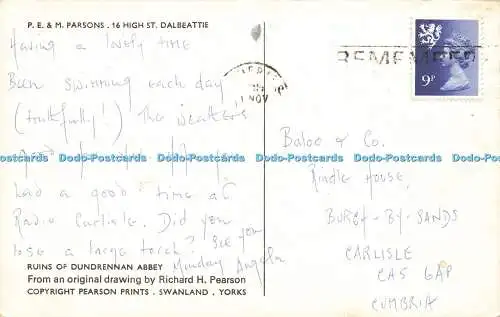 P. E. & M. PARSONS . 16 HIGH ST. DALBEATTIE
Having a lovely time
Been swimming each day
(truthfully!) The weather's
good
had a good time at
Radio Carlisle. Did you
lose a large torch? See you
Monday Angela
RUINS OF DUNDRENNAN ABBEY
From an original drawing by Richard H. Pearson
COPYRIGHT PEARSON PRINTS . SWANLAND . YORKS
NOV
REMEMBER
9P
& Co.
House,
BURGH-BY-SANDS
CARLISLE
CA5 6AP
CUMBRIA
Dodo-Postcards Dodo-Postcards Dodo-Postcards Dodo-Postcards Dodo-Postcards Dodo-Postcards